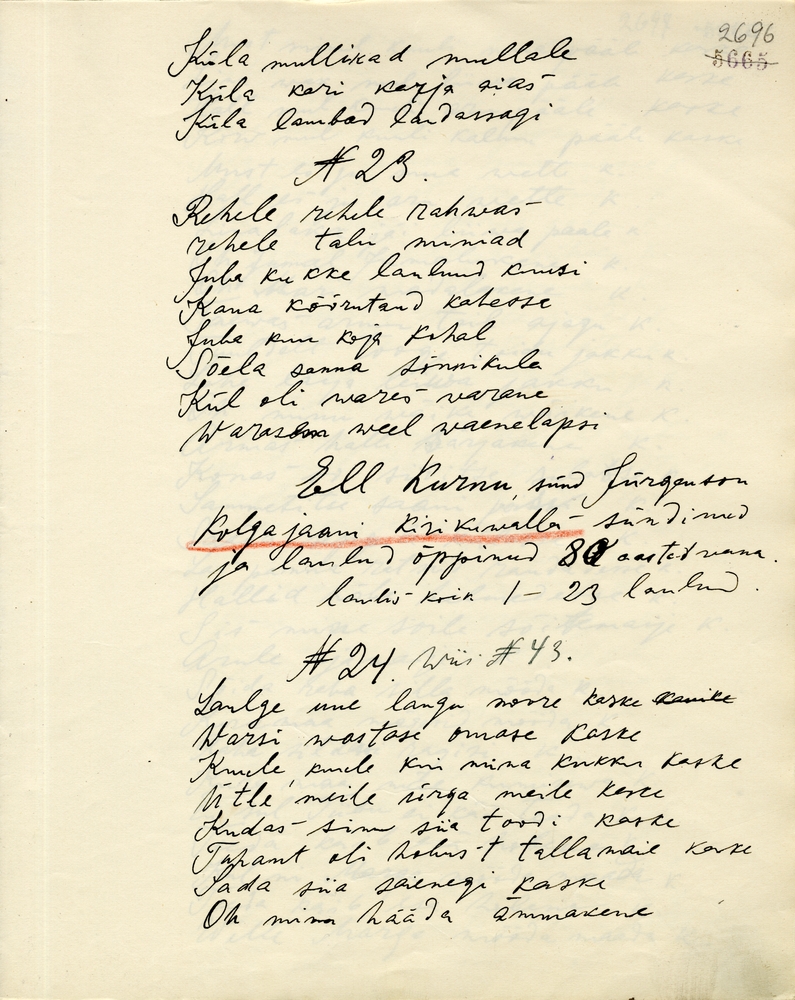 2696
5665
Küla mullikad mullale
Küla kari karja aias
Küla lambad laudassagi
№ 23.
Rehele rehele rahwas
rehele talu miniad
Juba kukke laulnud kuusi
Kana kõõrutand katesse
Juba kuu koja kohal
Sõela sanna sõnnikula
Kül oli wares varane
Warasem weel waenelapsi
Ell Kurnu, sünd Jürgenson
Kolga jaani kirikuwallas sündinud
ja laulud õppinud 80 aastad vana.
laulis koik 1 – 23 laulud.
№ 24. Wiis № 43.
Laulge uue langu noore kaske kanike
Warsi wastase omase kaske
Kuule, kuule kui mina kukku kaske
Ütle meile ürga meile kaske
Kudas sinu siia toodi kaske
Tahant oli hobust tallamaie kaske
Sada siia saienegi kaske
Oh minu hääda ämmakene